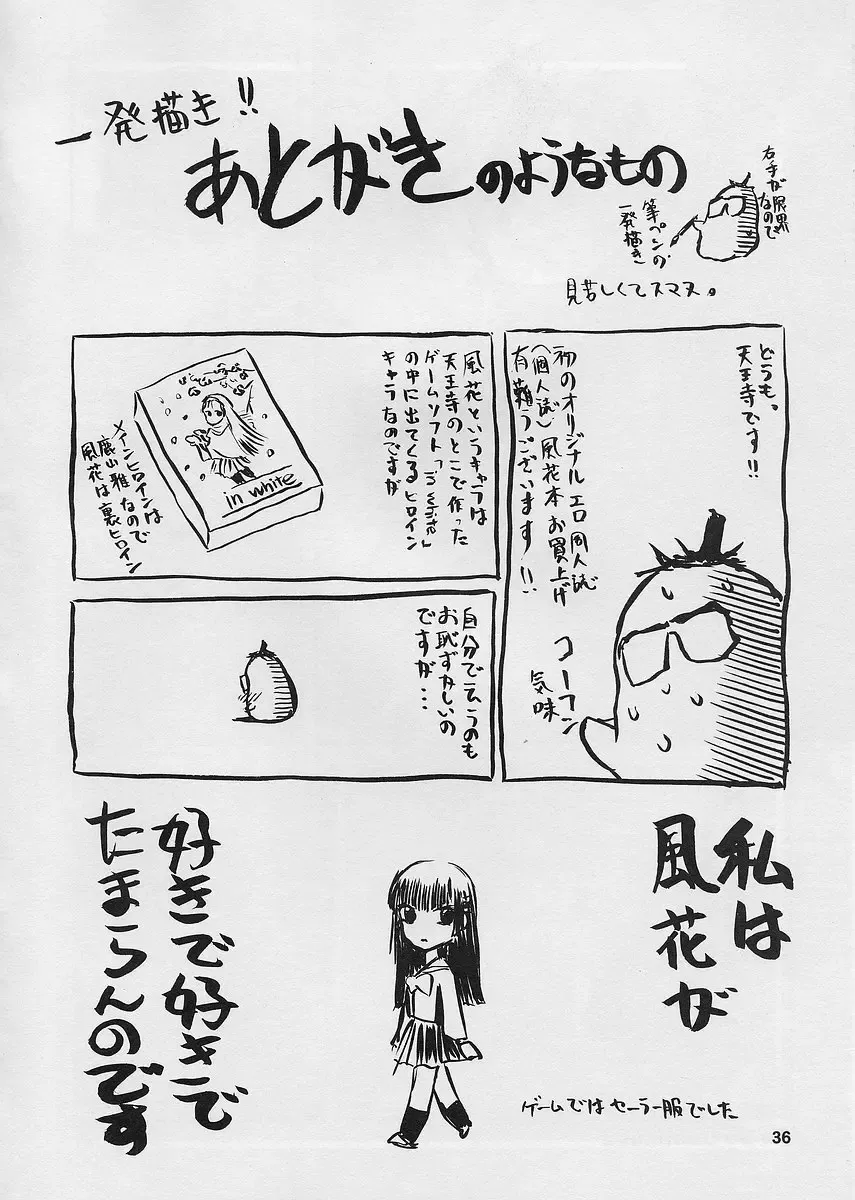 一発描き!!
あとがきのようなもの
右手が限界
なので
筆ペンの
一発描き
見苦しくてスマヌ。
どうも。
天王寺です!!
初のオリジナル エロ同人誌
(個人誌)風花本お買上げ
有難うございます!!
コーフン
気味
風花というキャラは
天王寺のとこで作った
ゲームソフト「in white」
の中に出てくるヒロイン
キャラなのですが
in white
メインヒロインは
鹿山雅なので
風花は裏ヒロイン
自分で云うのも
お恥ずかしいの
ですが・・・
私は
風花が
好きで好きで
たまらんのです
ゲームではセーラー服でした
36